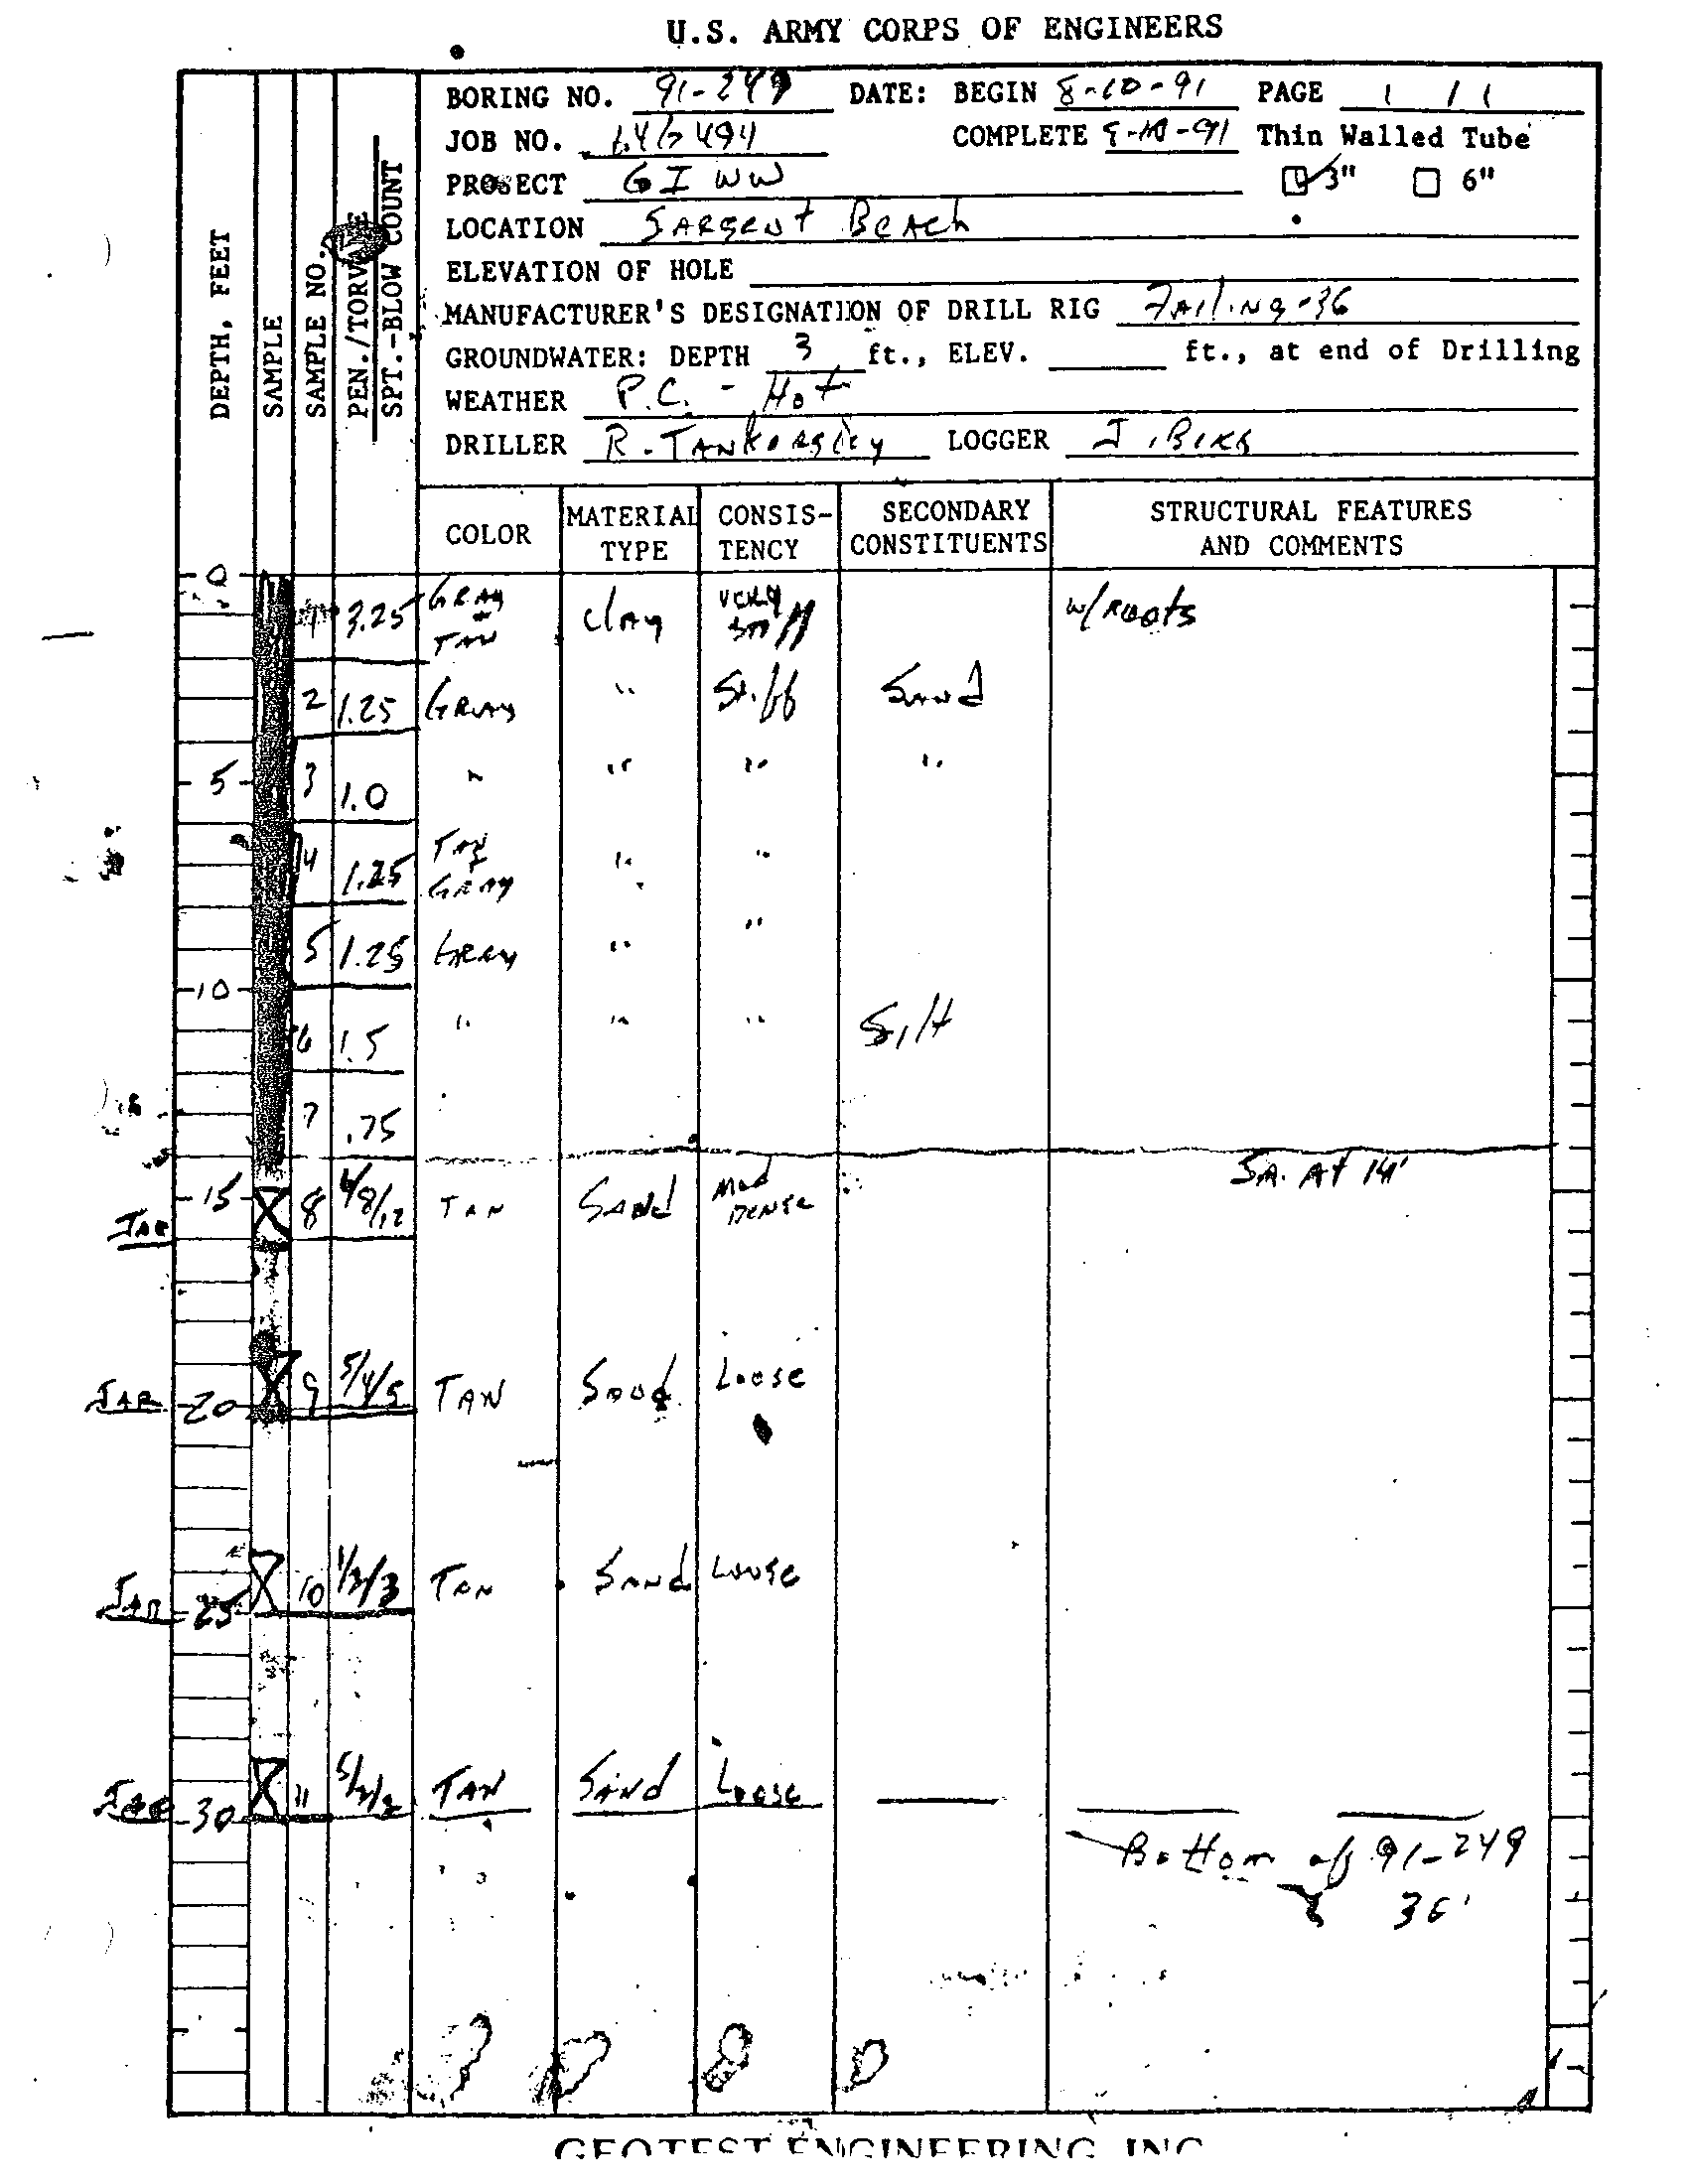 U.S. ARMY CORPS OF ENGINEERS
BORING NO. 91-249 DATE: BEGIN 8-10-91 PAGE 1 / 1
JOB NO. COMPLETE 8-10-91 Thin Walled Tube
PROJECT GIWW 3" 6"
LOCATION SARGENT BEACH
ELEVATION OF HOLE
MANUFACTURER'S DESIGNATION OF DRILL RIG FAILING-36
GROUNDWATER: DEPTH 3 ft., ELEV. ft., at end of Drilling
WEATHER P.C. - Hot
DRILLER R. TANKERSLEY LOGGER
DEPTH, FEET
SAMPLE
SAMPLE NO.
PEN./TORVANE
SPT.-BLOW COUNT
COLOR MATERIAL TYPE CONSIS-TENCY SECONDARY CONSTITUENTS STRUCTURAL FEATURES AND COMMENTS
0
1 3.25 GRAY TAN Clay VERY Stiff w/ Roots
2 1.25 GRAY " Stiff Sand
5 3 1.0 " " " "
4 1.25 TAN & GRAY " "
5 1.25 GRAY " "
10
6 1.5 " " " Silt
7 .75
SA. At 14'
JAR 15 8 8/12 TAN SAND Med DENSE
JAR 20 9 5/4/5 TAN Sand Loose
JAR 25 10 TAN Sand Loose
JAR 30 11 TAN Sand Loose
Bottom of 91-249
30'
GEOTEST ENGINEERING, INC.